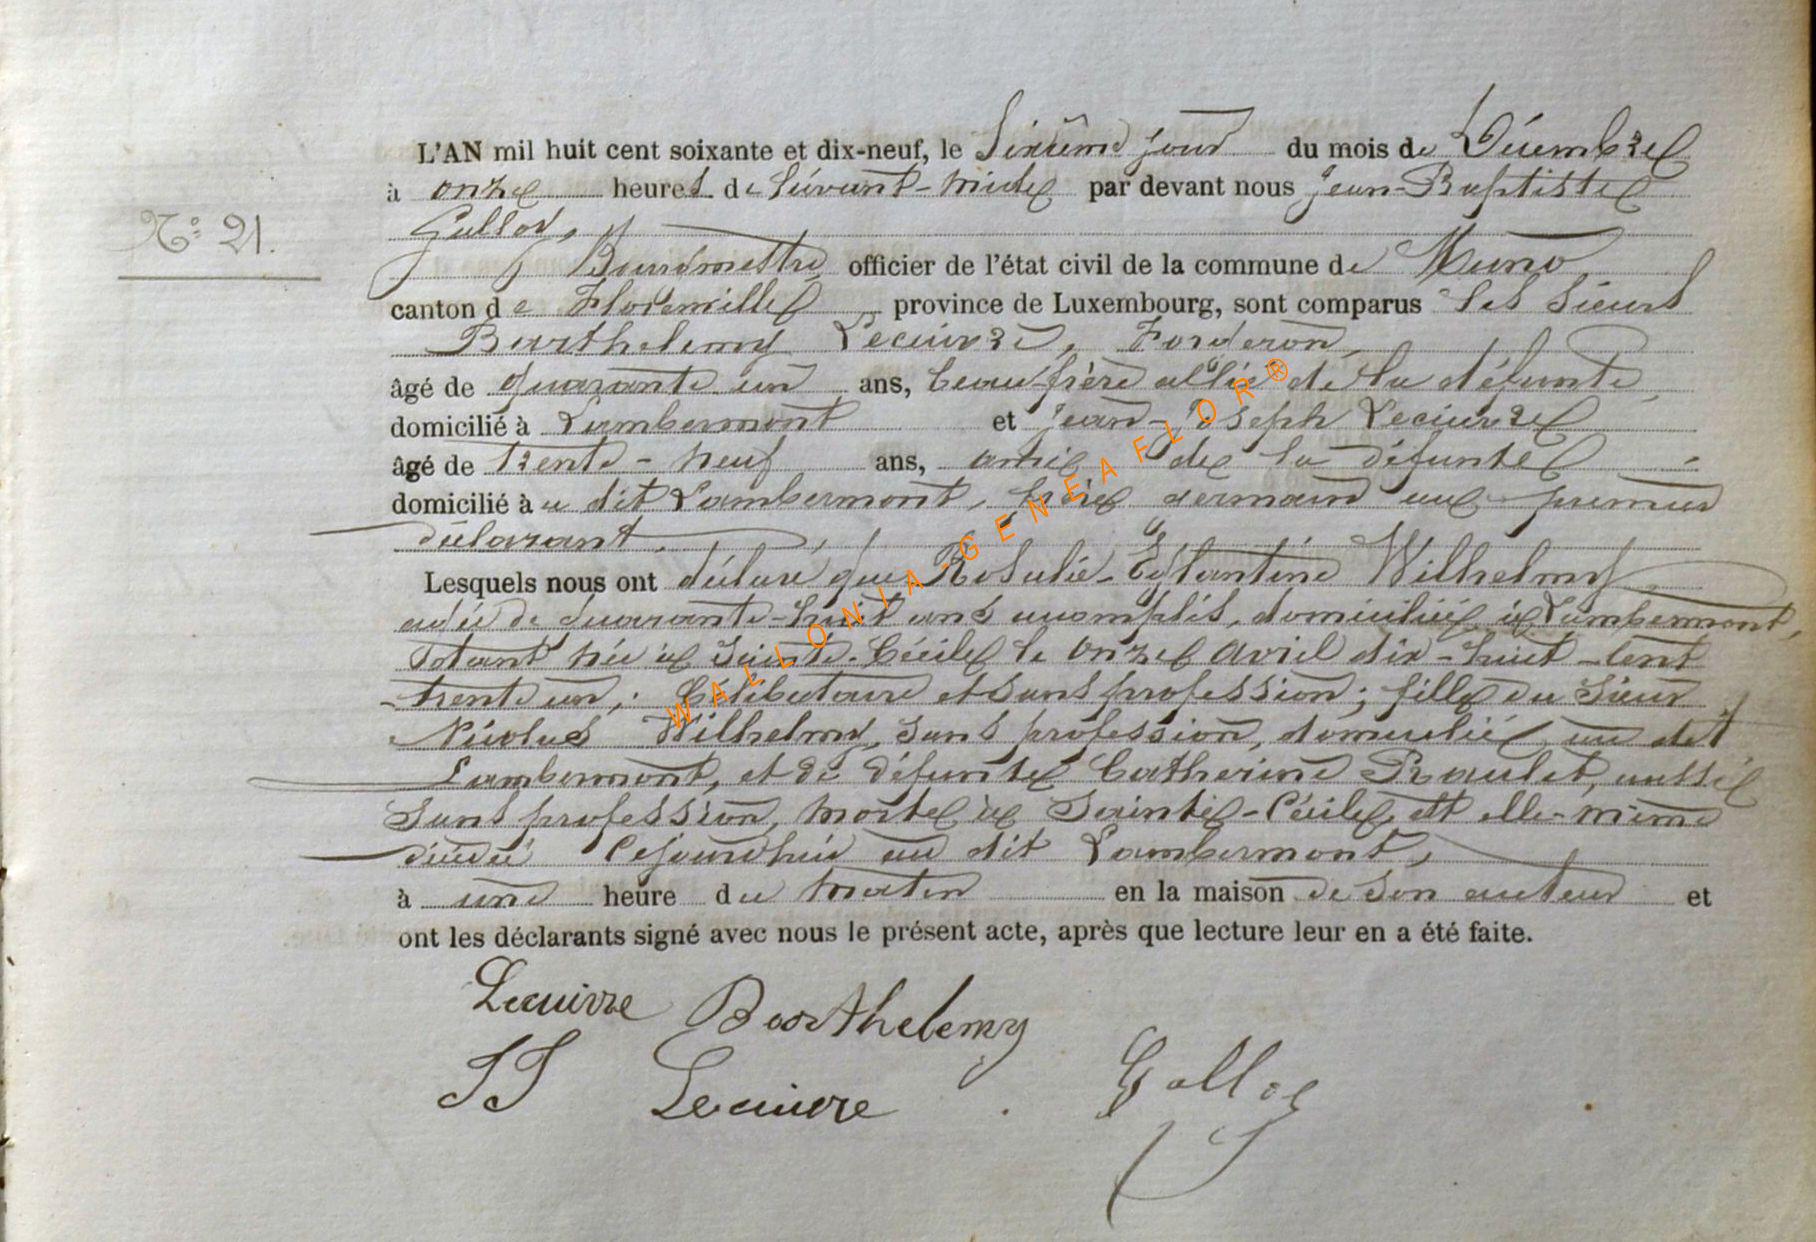 L'AN mil huit cent soixante et dix-neuf, le Sixième jour du mois de Décembre
à onze heures de l'avant-midi par devant nous Jean-Baptiste
N° 21.
Bourgmestre officier de l'état civil de la commune de Muno
canton de Florenville province de Luxembourg, sont comparus les sieurs
Barthelemy Lecuivre, Forgeron,
âgé de quarante un ans, beau-frère allié de la défunte,
domicilié à Lambermont et Jean-Joseph Lecuivre
âgé de trente-neuf ans, ami de la défunte
domicilié au dit Lambermont, frère germain au premier
déclarant.
Lesquels nous ont déclaré que Rosalie-Eglantine Wilhelmy
agée de quarante-huit ans accomplis, domiciliée à Lambermont,
étant née à Sainte-Cécile le onze avril dix-huit-cent
trente un; Célibataire et sans profession; fille du Sieur
Nicolas Wilhelmy, sans profession, domicilié au dit
Lambermont, et de défunte Catherine Raulet, aussi
sans profession, morte à Sainte-Cécile, et elle-même
décédée Cejourd'hui au dit Lambermont,
à une heure du matin en la maison de son auteur et
ont les déclarants signé avec nous le présent acte, après que lecture leur en a été faite.
Lecuivre Barthelemy
JJ Lecuivre
WALLONIA-GENEAFLOR®